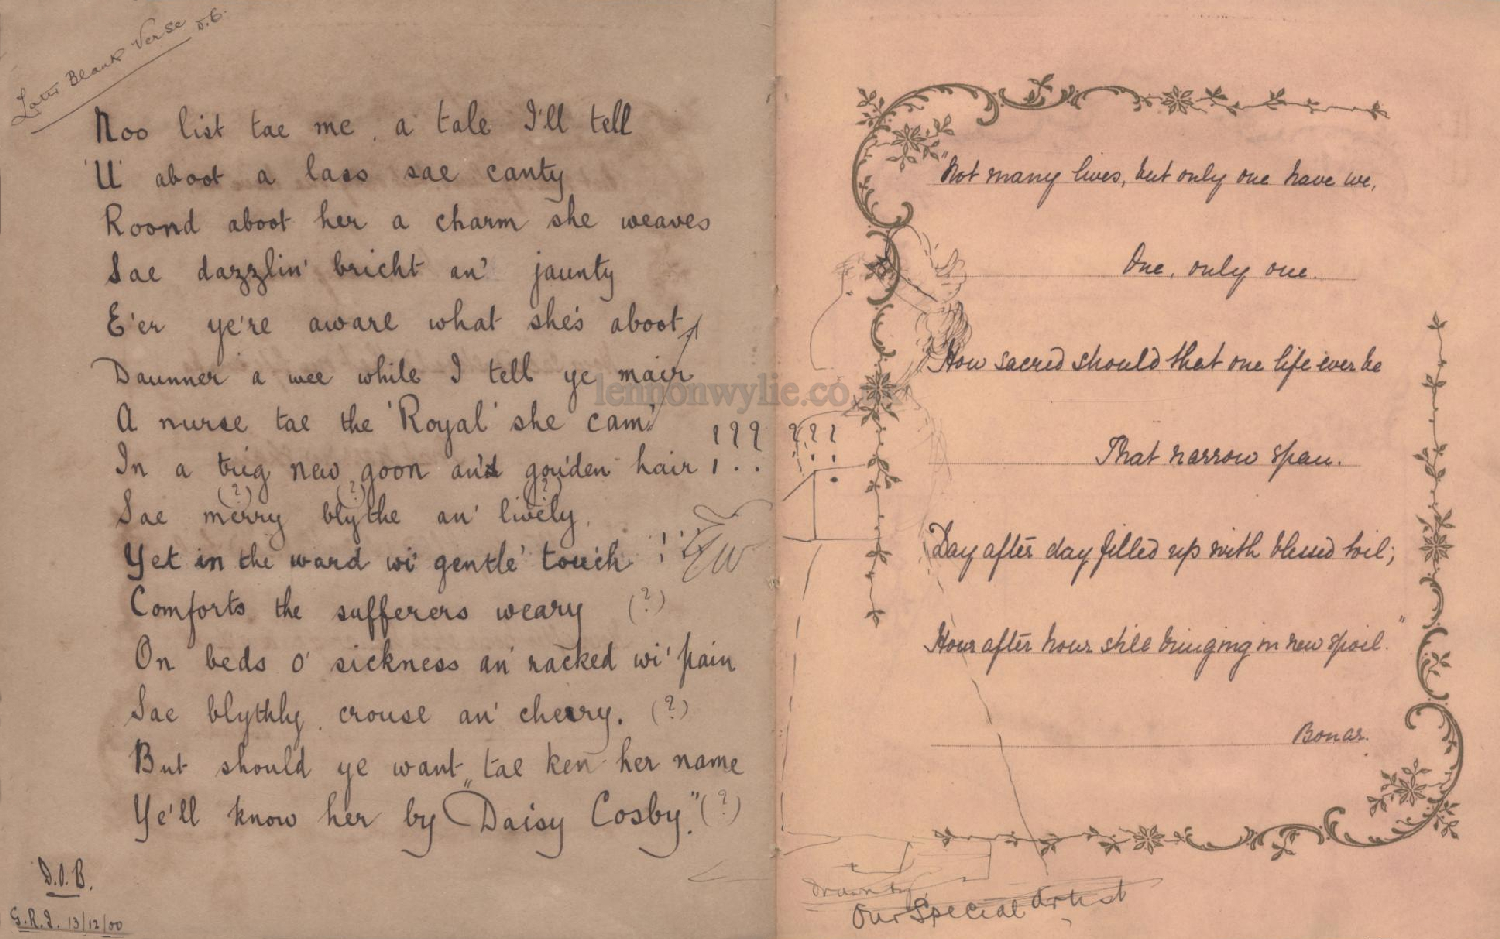 Later Blank Verse
Noo list tae me a tale I'll tell
'U' aboot a lass sae canty
Roond aboot her a charm she weaves
Sae dazzlin' bricht an' jaunty
E'er ye're aware what she's aboot
Daunner a wee while I tell ye mair
A nurse tae the 'Royal' she cam'
In a trig new goon an' gou'den hair ! ? ?
(?) (?) (?)
Sae merry blythe an' lively.
Yet in the ward wi' gentle touch !
Comforts the sufferers weary (?)
On beds o' sickness an' racked wi' pain
Sae blythly crouse an' cheery. (?)
But should ye want tae ken her name
Ye'll know her by "Daisy Cosby." (?)
D.O.B.
G.R.I. 13/12/00
lennonwylie.co.uk
"Not many lives, but only one have we,
One, only one.
How sacred should that one life ever be
That narrow span.
Day after day filled up with blessed toil;
Hour after hour still bringing in new spoil."
Bonar.
? ? ?
Drawn by
Our Special Artist